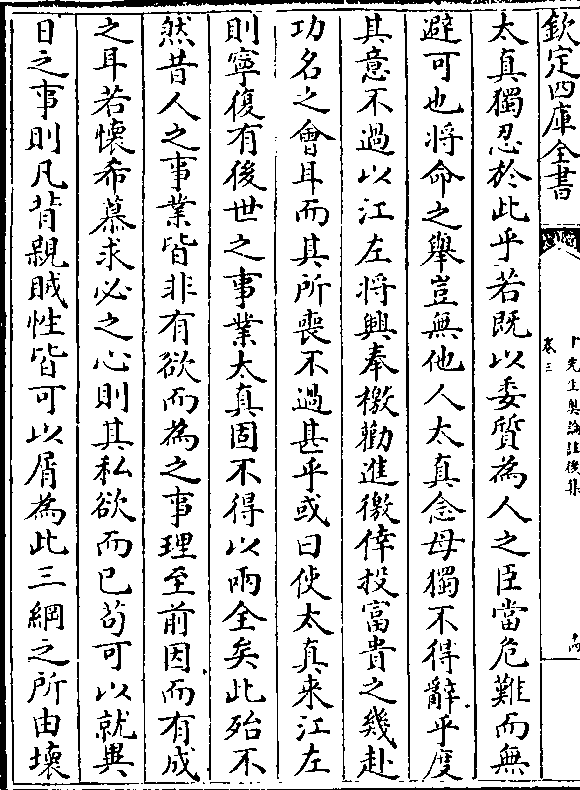 欽定四庫全書
十先生奧論註後集
卷三
太真獨忍於此乎若既以委質為人之臣當危難而無
避可也將命之舉豈無他人太真念母獨不得辭乎度
其意不過以江左將興奉檄勸進徼倖投富貴之幾赴
功名之會耳而其所喪不過甚乎或曰使太真不來江左
則寧復有後世之事業太真固不得以兩全矣此殆不
然昔人之事業皆非有欲而為之事理至前因而有成
之耳若懷希慕求必之心則其私欲而已苟可以就異
日之事則凡背親賊性皆可以屑為此三綱之所由壞